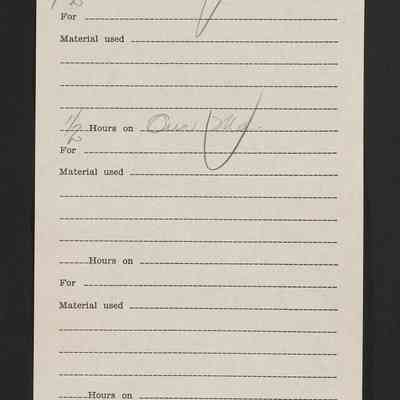 For
Material used
1/2 Hours on
For
Material used
Hours on
For
Material used
Hours on